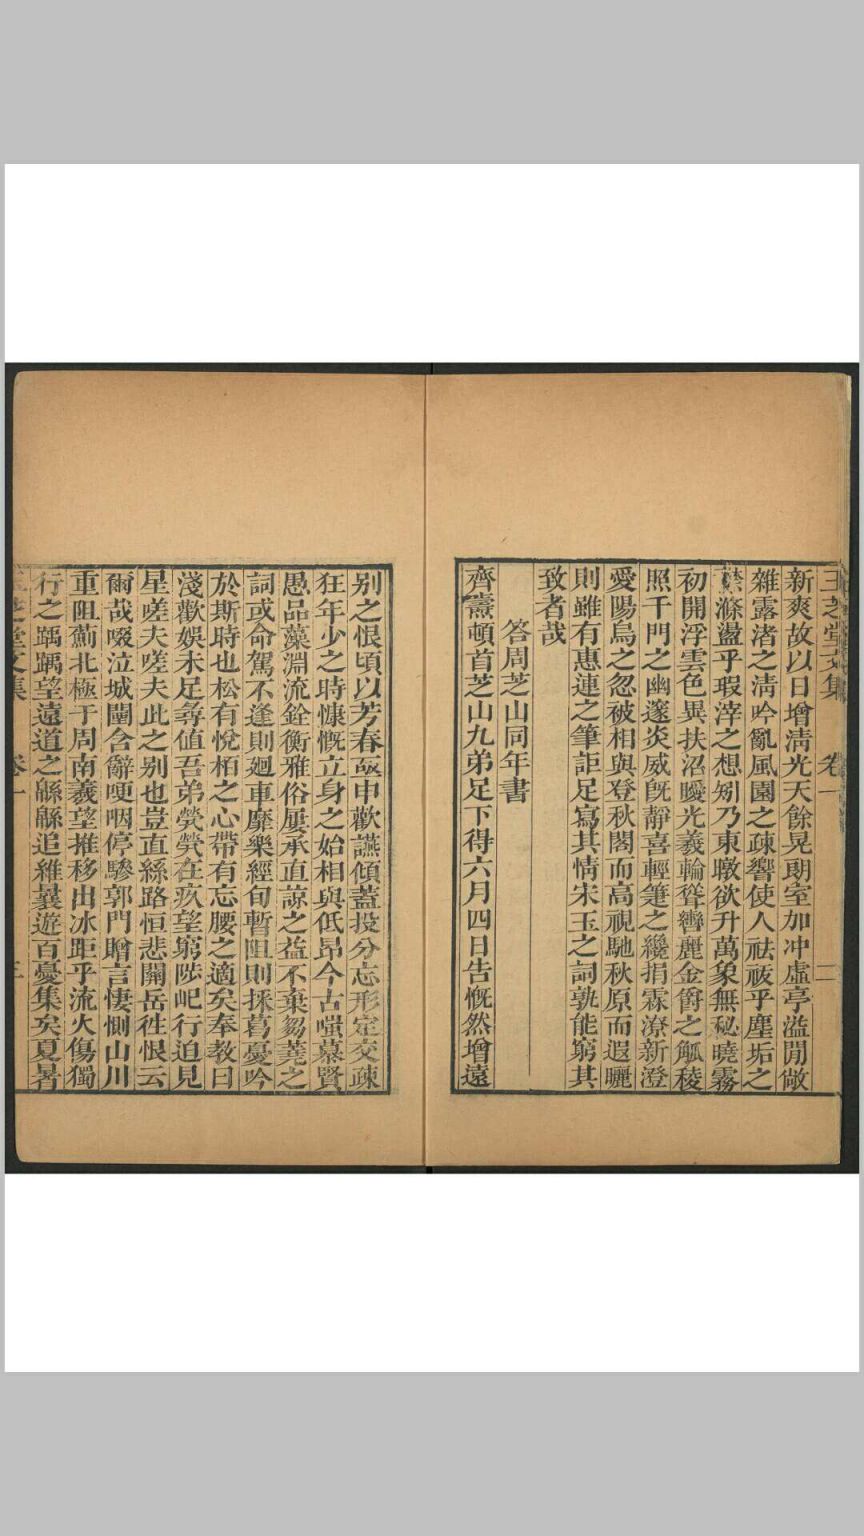 玉芝堂文集 卷一 二
新爽故以日增清光天餘晃朗室加冲虛亭溢閒敞
雜露渚之清吟亂風園之疎響使人祛祓乎塵垢之
襟滌盪乎瑕滓之想矧乃東暾欲升萬象無秘曉霧
初開浮雲色異扶沼曖光羲輪聳轡麗金爵之觚稜
照千門之幽邃炎威旣靜喜輕箑之纔捐霖潦新澄
愛陽烏之忽被相與登秋閣而高視馳秋原而遐矖
則雖有惠連之筆詎足寫其情宋玉之詞孰能窮其
致者哉
答周芝山同年書
齊燾頓首芝山九弟足下得六月四日吿慨然增遠
别之恨頃以芳春亟中歡讌傾蓋投分忘形定交疎
狂年少之時慷慨立身之始相與低昂今古嗤慕賢
愚品藻淵流銓衡雅俗屢承直諒之益不棄芻蕘之
詞或命駕不逢則廻車靡樂經旬暫阻則採葛憂吟
於斯時也松有悅栢之心帶有忘腰之適矣奉教日
淺歡娛未足尋值吾弟煢煢在疚望窮陟屺行迫見
星嗟夫嗟夫此之别也豈直緜路恒悲關岳徃恨云
爾哉啜泣城闉含辭哽咽停驂郭門贈言悽惻山川
重阻薊北極于周南羲望推移出冰距乎流火傷獨
行之踽踽望遠道之緜緜追維曩遊百憂集矣夏暑
玉芝堂文集 卷一 三